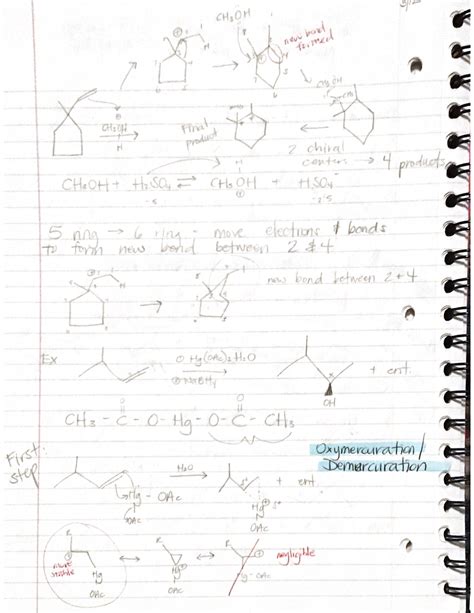 CH3OH
new bond formed
CH3OH
CH3OH
H
Final product
2 chiral centers → 4 products
CH3OH + H2SO4 ⇌ CH3OH + HSO4-
H
5 ring → 6 ring - move electrons & bonds
to form new bond between 2 & 4
new bond between 2 & 4
Ex
① Hg(OAc)2, H2O
② NaBH4
+ ent.
OH
CH3 - C - O - Hg - O - C - CH3
O O
Oxymercuration/
Demercuration
First step:
H2O
Hg - OAc
OAc
+ ent
Hg
OAc
R
more stable
Hg
OAc
R
Hg
OAc
R
negligible
Hg-OAc